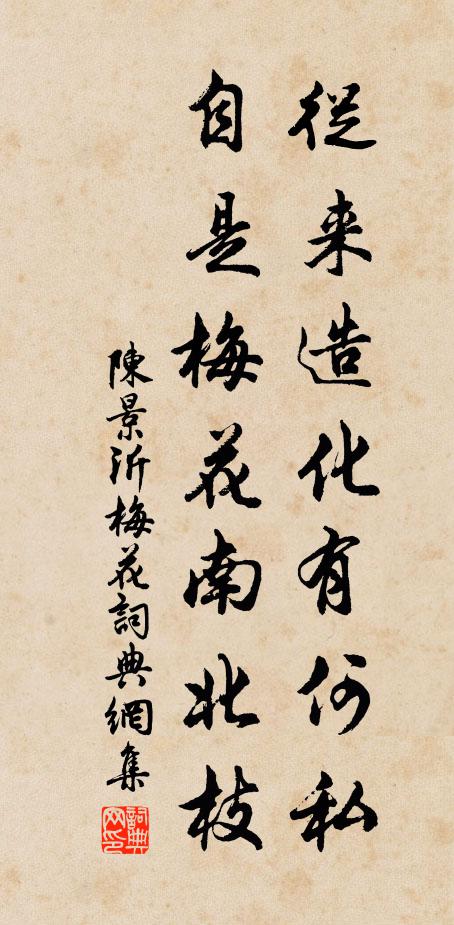 從来造化有何私
自是梅花南北枝
陳景沂梅花詞典網集
詞典网印